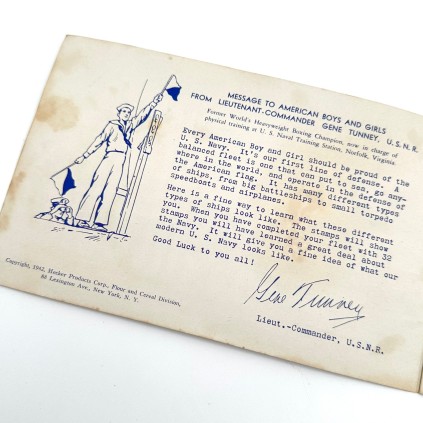 MESSAGE TO AMERICAN BOYS AND GIRLS
FROM LIEUTENANT-COMMANDER GENE TUNNEY, U.S.N.R.
Former World's Heavyweight Boxing Champion, now in charge of
physical training at U. S. Naval Training Station, Norfolk, Virginia.
Every American Boy and Girl should be proud of the
U. S. Navy. It's our first line of defense. A
balanced fleet is one that can put to sea, go any-
where in the world, and operate in the defense of
the American flag. It has many different types
of ships, from big battleships to small torpedo
speedboats and airplanes.
Here is a fine way to learn what these different
types of ships look like. The stamps will show
you. When you have completed your fleet with 32
stamps you will have learned a great deal about
the Navy. It will give you a fine idea of what our
modern U. S. Navy looks like.
Good Luck to you all!
Gene Tunney
Lieut.-Commander, U.S.N.R.
Copyright, 1942, Hecker Products Corp., Flour and Cereal Division,
88 Lexington Ave., New York, N. Y.